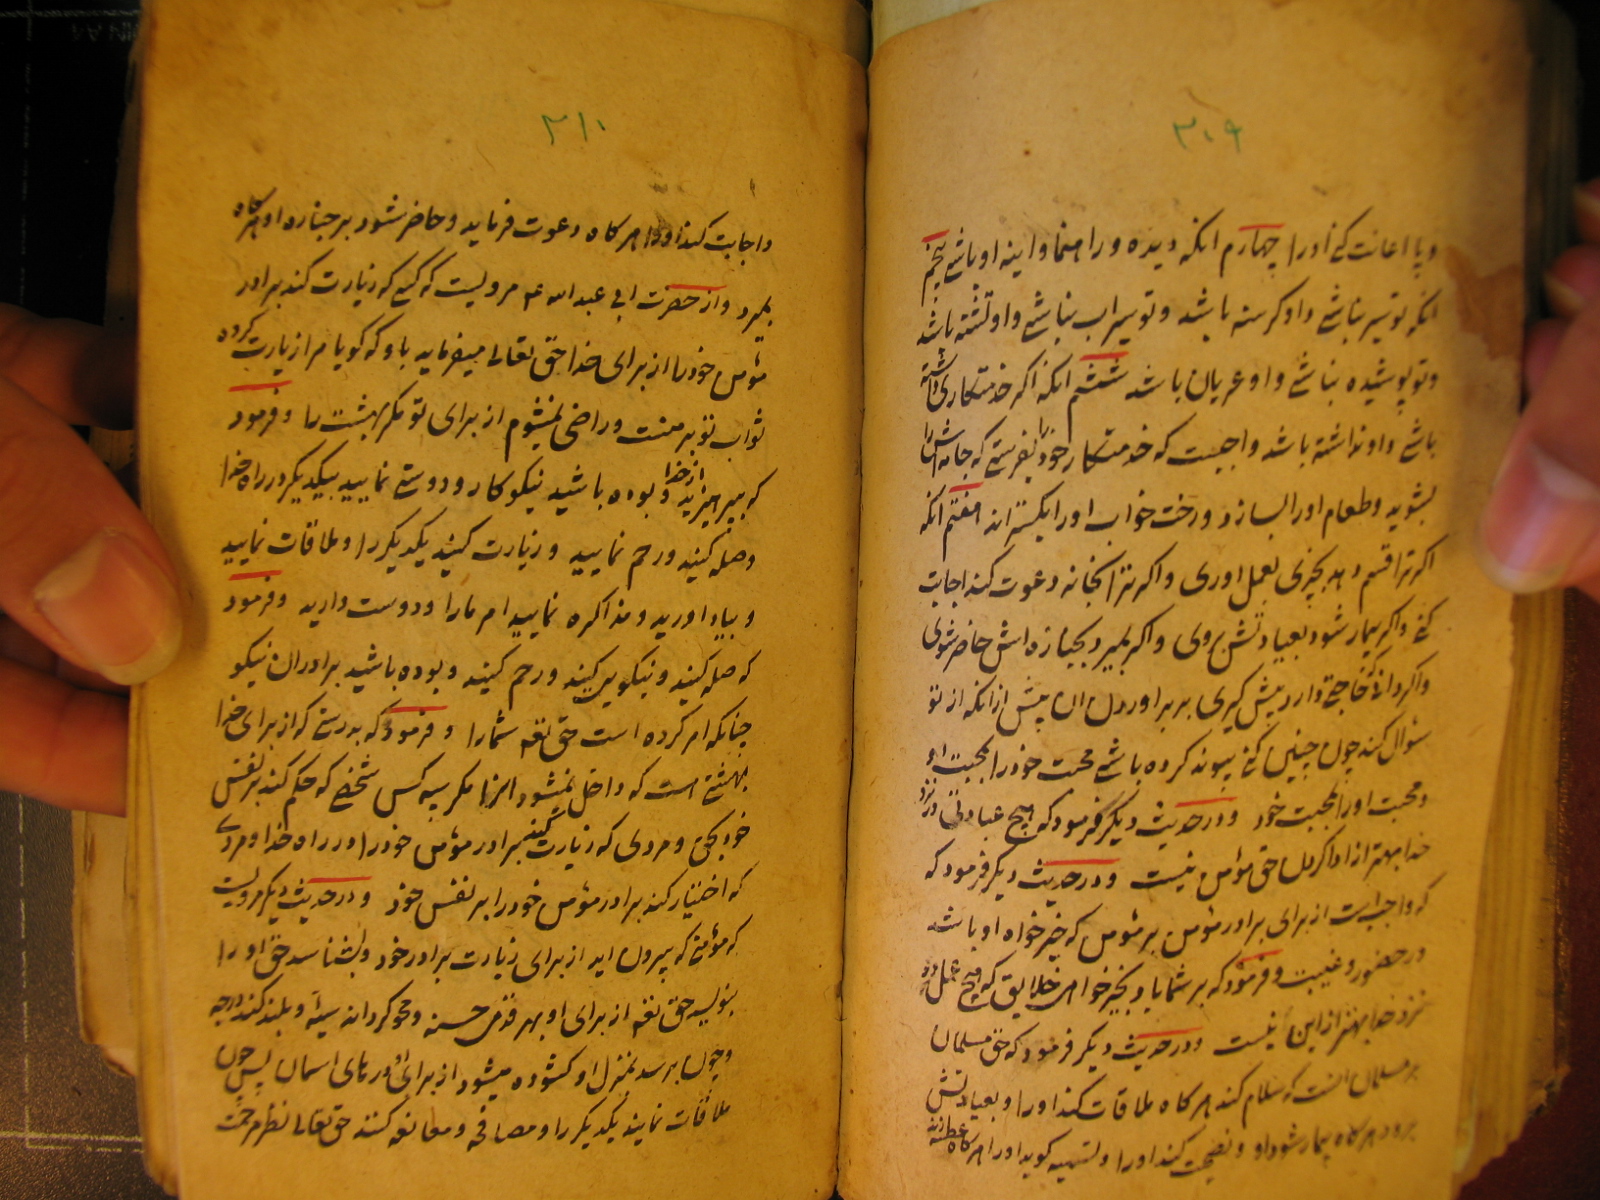 ۳۰۹
و پا اعانت کنی او را چهارم انکه دیده و راهنما و اینه او باشی پنجم
انکه تو سیر نباشی و او کرسنه باشد و تو سیراب نباشی و او تشنه باشد
و تو پوشیده نباشی و او عریان باشد ششم انکه اکر خدمتکاری داشته
باشی و او نداشته باشد واجبست که خدمتکار خود را بفرستی که جامه اش را
بشوید و طعام او را بسازد و رخت خواب او را بکستراند هفتم انکه
اکر ترا قسم دهد بچیزی بعمل اوری و اکر ترا بخانه دعوت کند اجابت
کنی و اکر بیمار شود بعیادتش بروی و اکر بمیرد بجنازه اش حاضر شوی
و اکر دانی که حاجتی دارد پیش کیری بر براوردن ان پیش از انکه از تو
سئوال کند چون چنین کنی پیوند کرده باشی محبت خود را بمحبت او
و محبت او را بمحبت خود و در حدیث دیکر فرمود که هیچ عبادتی در نزد
خدا بهتر از ادا کردن حق مؤمن نیست و در حدیث دیکر فرمود که
که واجبست از برای برادر مؤمن بر مؤمن که خیر خواه او باشد
در حضور و غیبت و فرمود که بر شما باد بخیر خواهی خلایق که هیچ عمل در
نزد خدا بهتر از این نیست و در حدیث دیکر فرمود که حق مسلمان
بر مسلمان انست که سلام کند هر کاه ملاقات کند او را و بعیادتش
برود هر کاه بیمار شود او و نصیحت کند او را و تسمیه کوید او را هر کاه عطسه زند
۳۱۰
و اجابت کند او را هر کاه دعوت فرماید و حاضر شود بر جنازه او هر کاه
بمیرد و از حضرت ابی عبد الله ع مرویست که کسی که زیارت کند برادر
مؤمن خود را از برای خدا حق تعالی میفرماید باو که کویا مرا زیارت کرده
ثواب تو بر منست و راضی نمیشوم از برای تو مکر بهشت را و فرمود
که بپرهیزید از خدا و بوده باشید نیکوکار و دوستی نمایید بیکدیکر در راه خدا
وصله کنید و رحم نمایید و زیارت کنید یکدیکر را و ملاقات نمایید
و بیاد اورید و مذاکره نمایید امر ما را و دوست دارید و فرمود
که صله کنید و نیکویی کنید و رحم کنید و بوده باشید برادران نیکو
چنانکه امر کرده است حق تعه شما را و فرمود که بدرستی که از برای خدا
بهشتی است که داخل نمیشود انرا مکر سه کس شخصی که حکم کند بر نفس
خود بحق و مردی که زیارت کند برادر مؤمن خود را در راه خدا و مردی
که اختیار کند برادر مؤمن خود را بر نفس خود و در حدیث دیکر مرویست
که مؤمنی که بیرون اید از برای زیارت برادر خود و بشناسد حق او را
بنویسد حق تعه از برای او بهر قدمی حسنه و محو کرداند سیئه و بلند کند درجه
و چون برسد بمنزل او کشوده میشود از برای او درهای اسمان پس چون
ملاقات نمایند یکدیکر را و مصافحه و معانقه کنند حق تعالی نظر رحمت